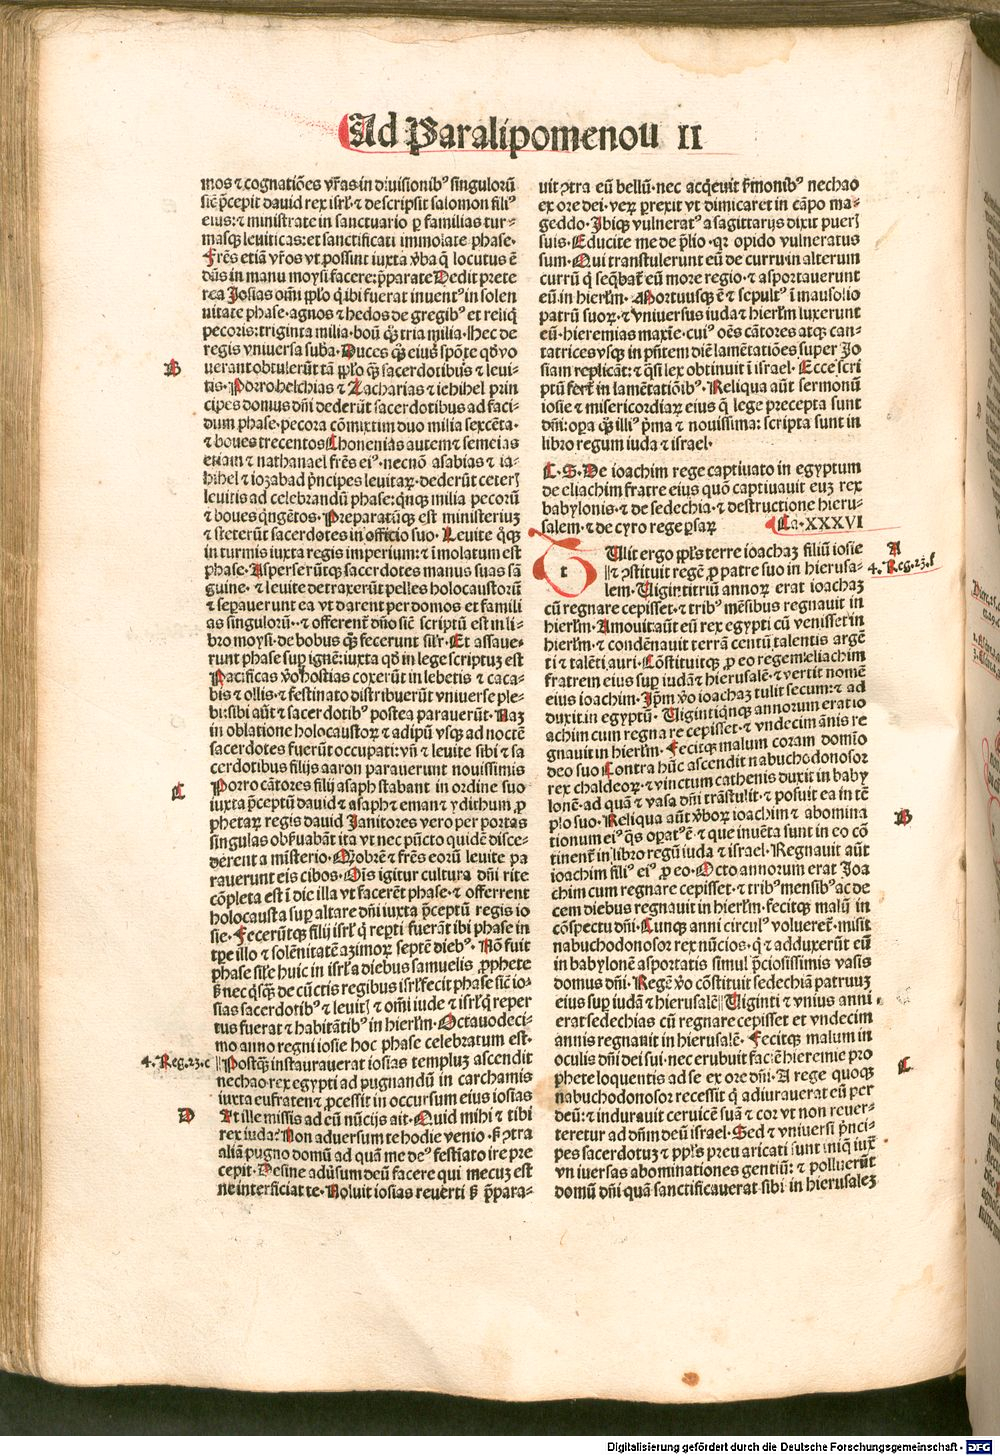 Ad Paralipomenou II
mos ⁊ cognatiões vr̃as in diuisionibꝰ singulorũ
siẽ p̃cepit dauid rex isrl̃·⁊ descripsit salomon filiꝰ
eius: ⁊ ministrate in sanctuario ꝑ familias tur-
masqꝫ leuiticas: et sanctificati immolate phase·
Frẽs etiã vr̃os vt possint iuxta v̓ba q̃ locutus ẽ
dñs in manu moysi facere: p̃parate Dedit prete
rea Josias om̃i pp̃lo q̃ ibi fuerat inuentꝰ in solen
nitate phase·agnos ⁊ hedos de gregibꝰ et reliq̃
pecoris: triginta milia·boũ qꝫ tria milia·Hec de
regis vniuersa suba̓·Duces qꝫ eiuꝰ spõte qd̓ vo
B
uerant obtulerũt tã pp̃lo qꝫ sacerdotibus ⁊ leui-
tis·Porro helchias ⁊ Zacharias ⁊ iehihel prin
cipes domus dñi dederũt sacerdotibus ad faci-
dum phase·pecora cõmixtim duo milia sexcẽta·
⁊ boues trecentos Chonenias autem ⁊ semeias
etiam ⁊ nathanael frẽs eiꝰ·necnõ asabias ⁊ ia-
hihel ⁊ iozabad p̃ncipes leuitaꝝ·dederũt ceterꝭ
leuitis ad celebrandũ phase: q̃nqꝫ milia pecorũ
⁊ boues q̃ngẽtos·Preparatũqꝫ est ministeriuꝫ
⁊ steterũt sacerdotes in officio suo·Leuite q̃qꝫ
in turmis iuxta regis imperium: ⁊ ĩmolatum est
phase·Asperserũtqꝫ sacerdotes manus suas sã
guine·⁊ leuite detraxerũt pelles holocaustorũ
⁊ sepauerunt ea vt darent per domos et famili
as singulorũ·⁊ offerent̃ dño siẽ scriptũ est in li-
bro moysi·de bobus qꝫ fecerunt silr̃·Et assaue-
runt phase suꝑ ignẽ: iuxta qd̓ in lege scriptuꝫ est
Pacificas v̓o hostias coxerũt in lebetis ⁊ caca-
bis ⁊ ollis·⁊ festinato distribuerũt vniuerse ple-
bi: sibi aũt ⁊ sacerdotibꝰ postea parauerũt·Naꝫ
in oblatione holocaustoꝝ ⁊ adipũ vsqꝫ ad noctẽ
sacerdotes fuerũt occupati: vñ ⁊ leuite sibi ⁊ sa
cerdotibus filijs aaron parauerunt nouissimis
C
Porro cãtores filij asaph stabant in ordine suo
iuxta p̃ceptũ dauid ⁊ asaph ⁊ eman ⁊ ydithum ꝓ
phetaꝝ regis dauid Janitores vero per portas
singulas obs̓uabãt ita vt nec pũcto quidẽ disce-
derent a misterio·Mobrẽ ⁊ frẽs eorũ leuite pa
rauerunt eis cibos·Ois igitur cultura dñi rite
cõpleta est ĩ die illa vt facerẽt phase·⁊ offerrent
holocausta suꝑ altare dñi iuxta p̃ceptũ regis io
sie·Fecerũtqꝫ filij isrl̃ q̃ rep̃ti fuerãt ibi phase in
tp̃e illo ⁊ solẽnitatẽ azimoꝝ septẽ diebꝰ·Nõ fuit
phase sil̃e huic in isrl̃ a diebus samuelis ꝓphete
s̓ nec q̃sqꝫ de cũctis regibus isrl̃ fecit phase siẽ io-
sias sacerdotibꝰ ⁊ leuitꝭ ⁊ om̃i iude ⁊ isrl̃ q̃ reper
tus fuerat ⁊ habitãtibꝰ in hierl̃m·Octauodeci-
mo anno regni iosie hoc phase celebratum est·
4·Reg·23·c
Postqꝫ instaurauerat iosias templuꝫ ascendit
nechao rex egypti ad pugnandũ in carchamis
iuxta eufraten ⁊ ꝓcessit in occursum eius iosias
D
At ille missis ad eũ nũcijs ait·Quid mihi ⁊ tibi
rex iuda? Non aduersum te hodie venio·s̓ ꝯtra
aliã pugno domũ ad quã me deꝰ festĩato ire pre
cepit·Desine adu̓sum deũ facere qui mecuꝫ est
ne interficiat te·Noluit iosias reuerti s̓ p̃para-
uit ꝯtra eũ bellũ·nec acq̃euit s̓monibꝰ nechao
ex ore dei·veꝝ ꝑrexit vt dimicaret in cãpo ma-
geddo·Ibiqꝫ vulneratꝰ a sagittarijs dixit puerꝭ
suis·Educite me de p̃lio·qꝛ opido vulneratus
sum·Qui transtulerunt eũ de curru in alterum
currũ q̃ seq̃bat̃ eũ more regio·⁊ asportauerunt
eũ in hierl̃m·Mortuusqꝫ ẽ ⁊ sepultꝰ ĩ mausolio
patrũ suoꝝ·⁊ vniuersus iuda ⁊ hierl̃m luxerunt
eũ·hieremias maxĩe·cuiꝰ oẽs cãtores atqꝫ can-
tatrices vsqꝫ in p̃ñtem diẽ lamẽtatiões super Jo
siam replicãt: ⁊ q̃si lex obtinuit ĩ israel·Ecce scri
ptũ fert̃ in lamẽtatiõibꝰ·Reliqua aũt sermonũ
iosie ⁊ misericordiaꝝ eius q̃ lege precepta sunt
dñi: oꝑa qꝫ illiꝰ p̃ma ⁊ nouissima: scripta sunt in
libro regum iuda ⁊ israel·
C·S·De ioachim rege captiuato in egyptum
de eliachim fratre eius quõ captiuauit euꝫ rex
babylonis·⁊ de sedechia·⁊ destructione hieru-
salem·⁊ de cyro rege ꝑsaꝝ Ca·XXXVI
A
4·Reg·23·f
t
Ulit ergo pp̃ls terre ioachaꝫ filiũ iosie
⁊ ꝯstituit regẽ ꝓ patre suo in hierusa-
lem·Uigintitriũ annoꝝ erat ioachaꝫ
cũ regnare cepisset·⁊ tribꝰ mẽsibus regnauit in
hierl̃m·Amouit aũt eũ rex egypti cũ venisset in
hierl̃m·⁊ condẽnauit terrã centũ talentis argẽ
ti ⁊ talẽti auri·Cõstituitqꝫ ꝓ eo regem eliachim
fratrem eius suꝑ iudã ⁊ hierusalẽ·⁊ vertit nomẽ
eius ioachim·Ip̃m v̓o ioachaꝫ tulit secum: ⁊ ad
duxit in egyptũ·Uigintiq̃nqꝫ annorum erat io
achim cum regnare cepisset·⁊ vndecim ãnis re
gnauit in hierl̃m·Fecitqꝫ malum coram domĩo
deo suo Contra hũc ascendit nabuchodonosor
rex chaldeoꝝ·⁊ vinctum cathenis duxit in baby
lonẽ·ad quã ⁊ vasa dñi trãstulit·⁊ posuit ea in tẽ
B
plo suo·Reliqua aũt v̓boꝝ ioachim ⁊ abomina
tionum eiꝰ q̃s oꝑatꝰ ẽ·⁊ que inuẽta sunt in eo cõ
tinent̃ in libro regũ iuda ⁊ israel·Regnauit aũt
ioachim filiꝰ eiꝰ ꝓ eo·Octo annorum erat Joa
chim cum regnare cepisset·⁊ tribꝰ mensibꝰ ac de
cem diebus regnauit in hierl̃m·fecitqꝫ malũ in
cõspectu dñi·Cunqꝫ anni circulꝰ volueret̃·misit
nabuchodonosor rex nũcios·q̃ ⁊ adduxerũt eũ
in babylonẽ asportatis simul p̃ciosissimis vasis
domus dñi·Regẽ v̓o cõstituit sedechiã patruuꝫ
eius suꝑ iudã ⁊ hierusalẽ Uiginti ⁊ vnius anni
erat sedechias cũ regnare cepisset et vndecim
annis regnauit in hierusalẽ·Fecitqꝫ malum in
oculis dñi dei sui·nec erubuit faciẽ hieremie pro
C
phete loquentis ad se ex ore dñi·A rege quoqꝫ
nabuchodonosor recessit q̃ adiurauerat eũ per
deũ: ⁊ indurauit ceruicẽ suã ⁊ cor vt non reuer-
teretur ad dñm deũ israel·Sed ⁊ vniuersi p̃nci-
pes sacerdotuꝫ ⁊ pp̃ls preuaricati sunt iniq̃ iux̃
vniuersas abominationes gentiũ: ⁊ polluerũt
domũ dñi quã sanctificauerat sibi in hierusaleꝫ
Digitalisierung gefördert durch die Deutsche Forschungsgemeinschaft - DFG